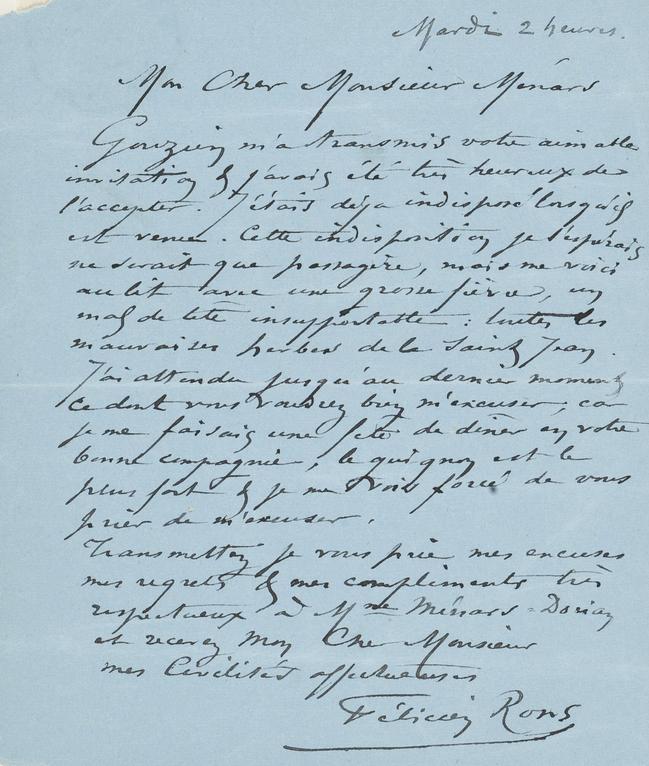 Mardi 2 heures.
Mon Cher Monsieur Ménars
Gouzien m'a transmis votre aimable
invitation & j'avais été très heureux de
l'accepter. J'étais déja indisposé lorsqu'il
est venu. Cette indisposition je l'espérais
ne serait que passagère, mais me voici
au lit avec une grosse fièvre, un
mal de tête insupportable : toutes les
mauvaises herbes de la Saint Jean.
J'ai attendu jusqu'au dernier moment
ce dont vous voudrez bien m'excuser, car
je me faisais une fête de diner en votre
bonne compagnie, le guignon est le
plus fort & je me vois forcé de vous
prier de m'excuser.
Transmettez je vous prie mes excuses
mes regrets & mes compliments très
respectueux à Mme Ménars-Dorian
et recevez mon Cher Monsieur
mes Civilités affectueuses
Félicien Rops